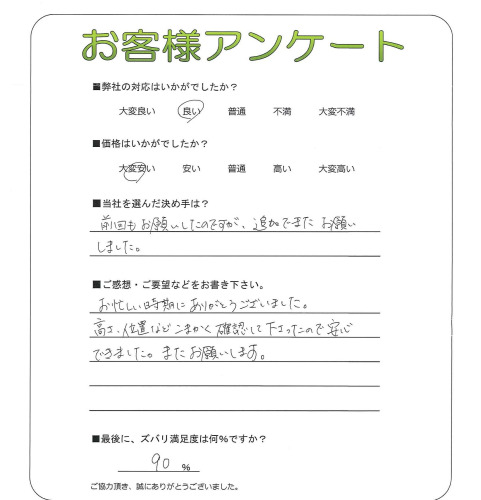 お客様アンケート
■弊社の対応はいかがでしたか？
大変良い 良い 普通 不満 大変不満
■価格はいかがでしたか？
大変安い 安い 普通 高い 大変高い
■当社を選んだ決め手は？
前回もお願いしたのですが、追加でまたお願い
しました。
■ご感想・ご要望などをお書き下さい。
お忙しい時期にありがとうございました。
高さ、位置などこまかく確認して下さったので安心
できました。またお願いします。
■最後に、ズバリ満足度は何％ですか？
90 ％
ご協力頂き、誠にありがとうございました。